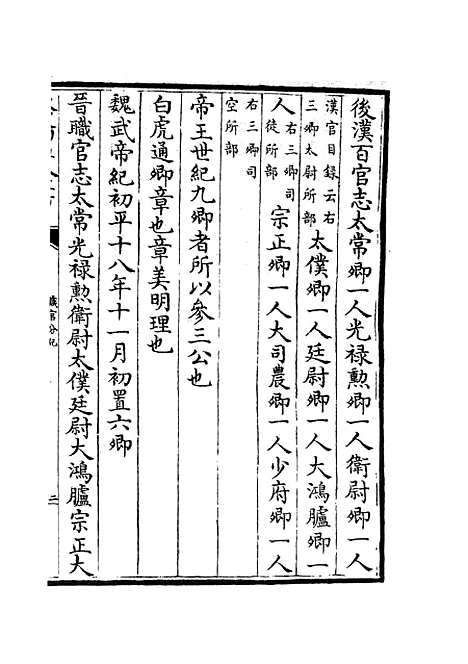 後漢百官志太常卿一人光祿勲卿一人衛尉卿一人
漢官目録云右
三卿太尉所部
太僕卿一人廷尉卿一人大鴻臚卿一
人
右三卿司
徒所部
宗正卿一人大司農卿一人少府卿一人
右三卿司
空所部
帝王世紀九卿者所以參三公也
白虎通卿章也章美明理也
魏武帝紀初平十八年十一月初置六卿
晉職官志太常光祿勲衛尉太僕廷尉大鴻臚宗正大
職官分紀
三